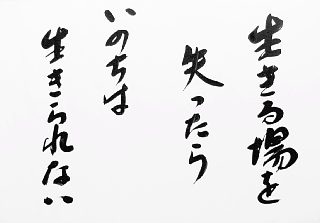 生きる場を
失ったら
いのちは
生きられない